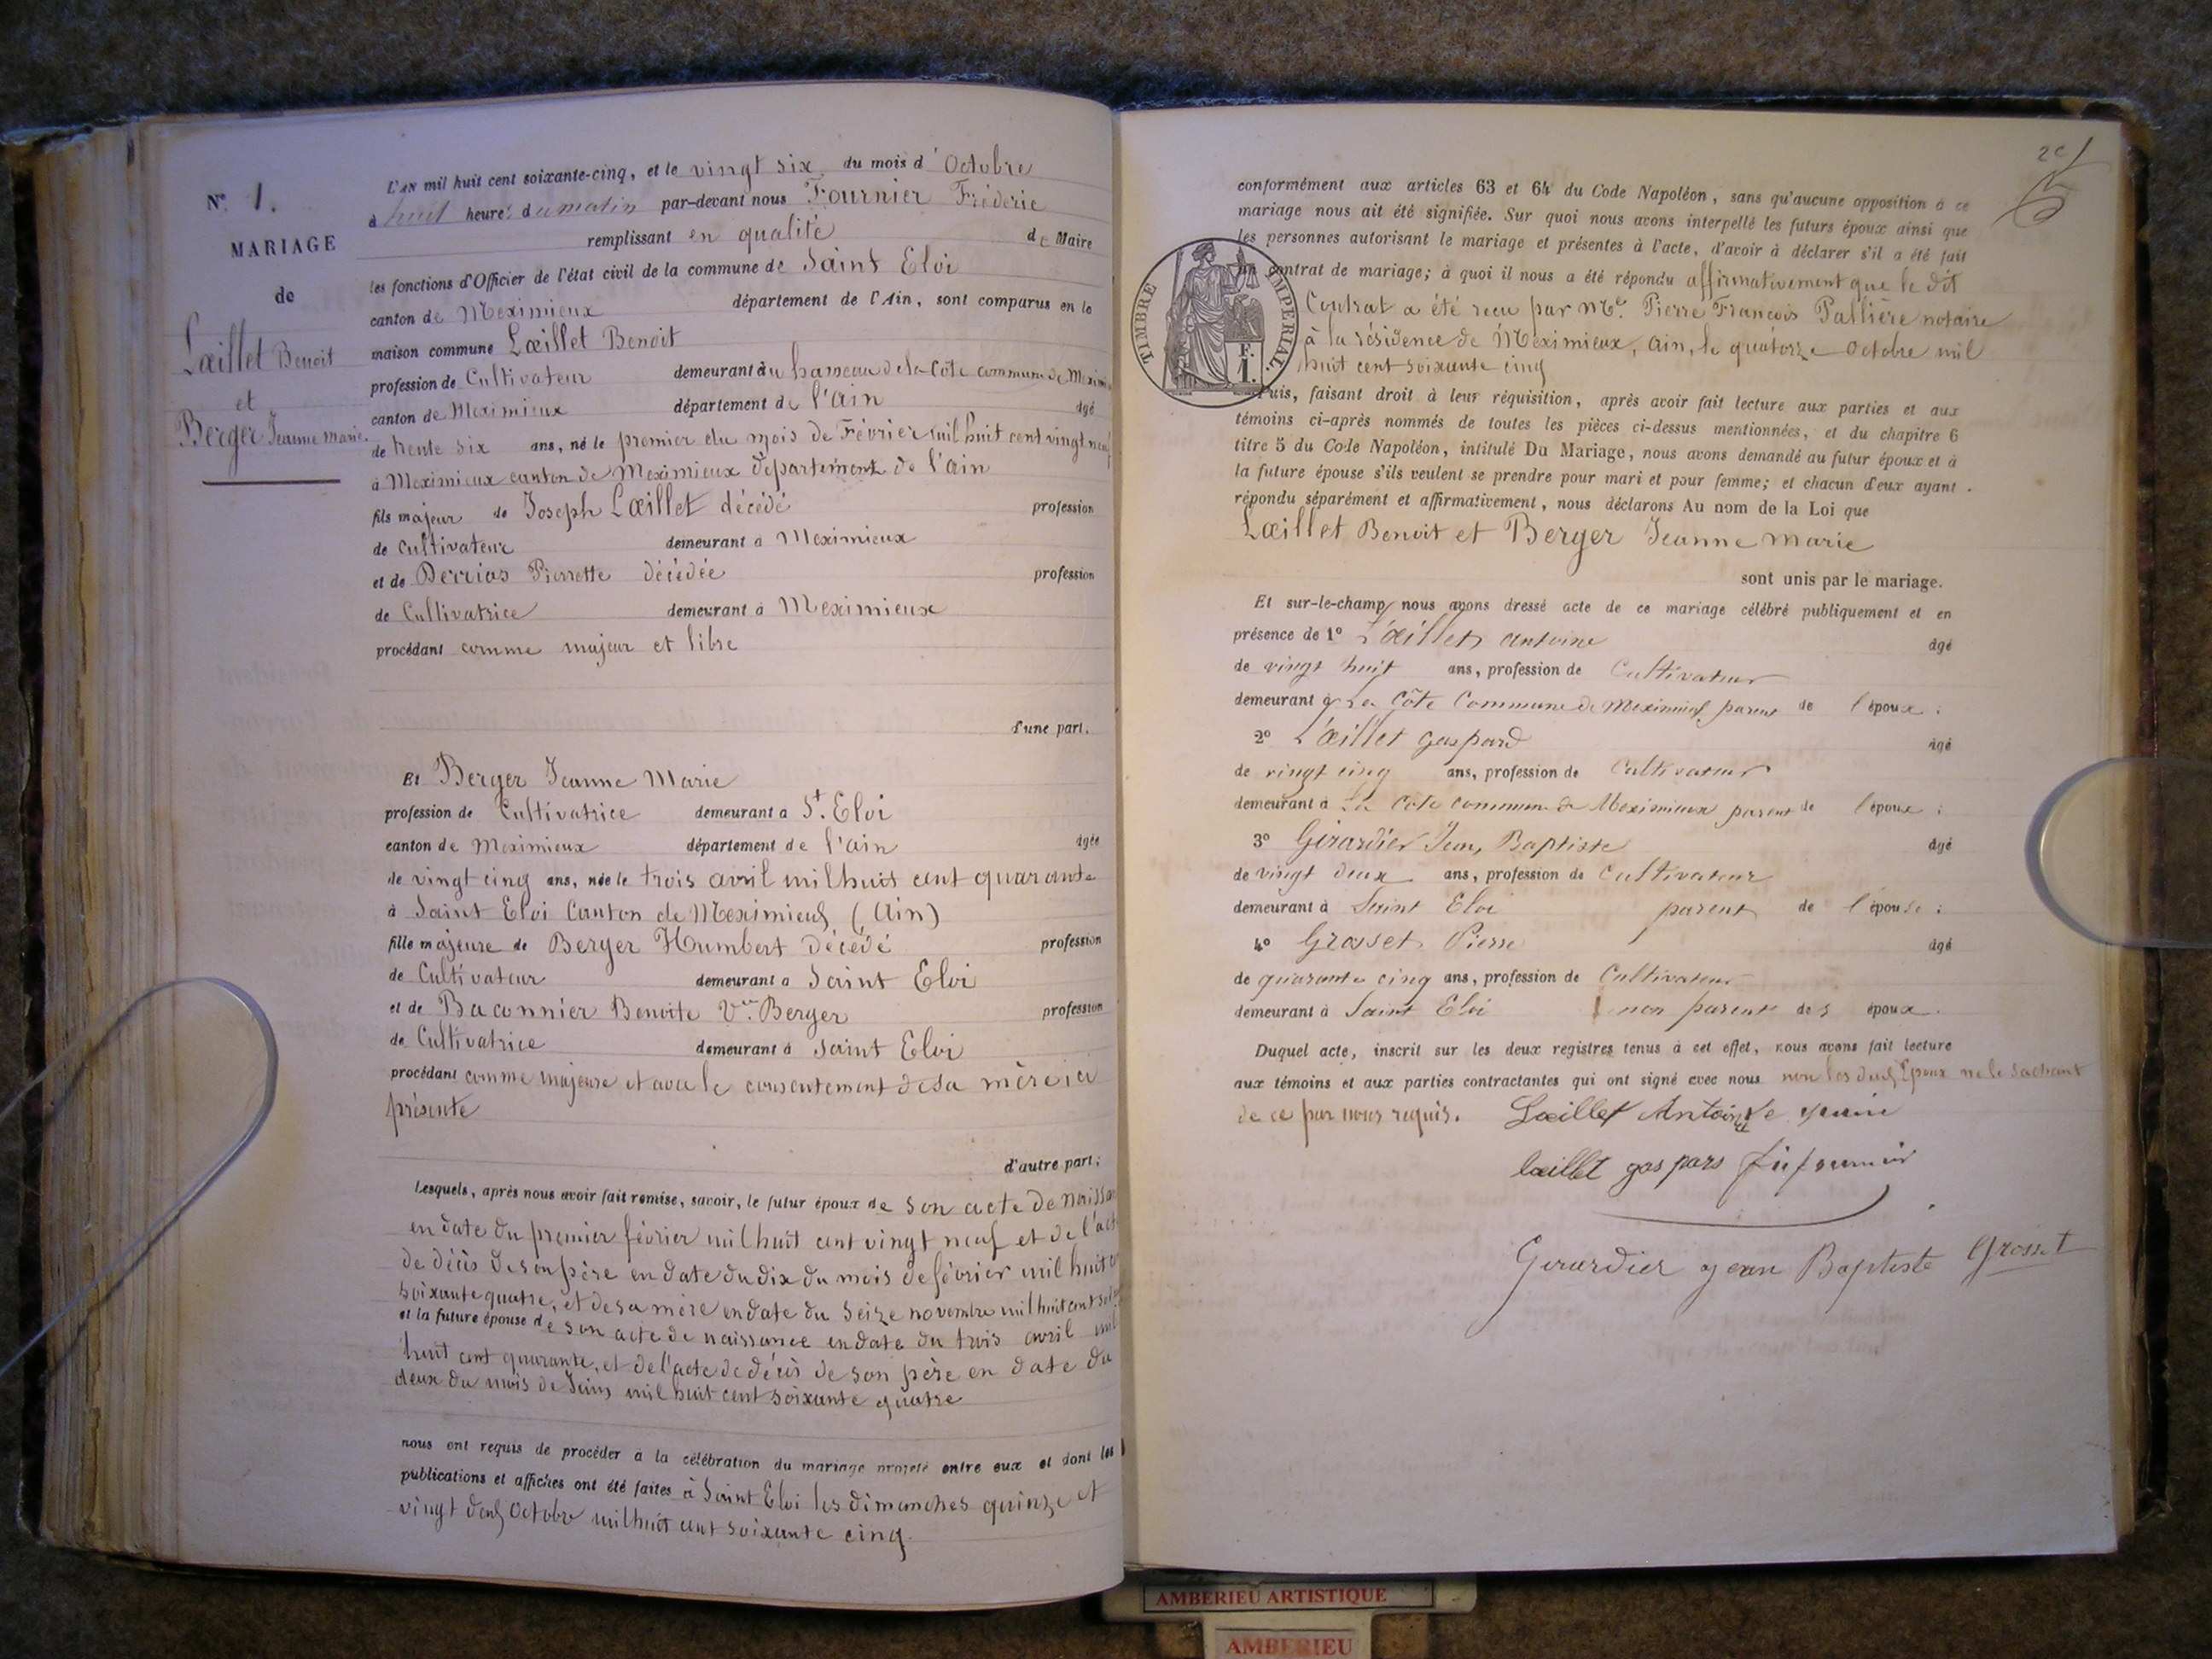 N° 1.
MARIAGE
de
Lœillet Benoit
et
Berger Jeanne Marie
L'AN mil huit cent soixante-cinq, et le vingt six du mois d'Octobre
à huit heures du matin par-devant nous Fournier Fréderic
remplissant en qualité de Maire
les fonctions d'Officier de l'état civil de la commune de Saint Eloi
canton de Meximieux département de l'Ain, sont comparus en la
maison commune Lœillet Benoit
profession de Cultivateur demeurant au hameau de la Côte commune de
canton de Meximieux département de l'Ain âgé
de trente six ans, né le premier du mois de Février mil huit cent vingt neuf
à Meximieux canton de Meximieux département de l'ain
fils majeur de Joseph Lœillet décédé profession
de Cultivateur demeurant à Meximieux
et de Pierrette décédée profession
de Cultivatrice demeurant à Meximieux
procédant comme majeur et libre
d'une part.
Et Berger Jeanne Marie
profession de Cultivatrice demeurant à St. Eloi
canton de Meximieux département de l'ain âgée
de vingt cinq ans, née le trois avril mil huit cent quarante
à Saint Eloi Canton de Meximieux (Ain)
fille majeure de Berger Humbert Décédé profession
de Cultivateur demeurant à Saint Eloi
et de Baconnier Benoite Vve Berger profession
de Cultivatrice demeurant à Saint Eloi
procédant comme majeure et avec le consentement de sa mère ici
présente
d'autre part;
Lesquels, après nous avoir fait remise, savoir, le futur époux de son acte de
en date du premier février mil huit cent vingt neuf et de
de décès de son père en date du dix du mois de février mil huit
soixante quatre, et de sa mère en date du seize novembre mil huit cent
et la future épouse de son acte de naissance en date du trois avril mil
huit cent quarante, et de l'acte de décès de son père en date du
deux du mois de Juin mil huit cent soixante quatre
nous ont requis de procéder à la célébration du mariage projeté entre eux et dont les
publications et affiches ont été faites à Saint Eloi les dimanches quinze et
vingt deux Octobre mil huit cent soixante cinq.
conformément aux articles 63 et 64 du Code Napoléon, sans qu'aucune opposition à ce
mariage nous ait été signifiée. Sur quoi nous avons interpellé les futurs époux ainsi que
les personnes autorisant le mariage et présentes à l'acte, d'avoir à déclarer s'il a été fait
contrat de mariage; à quoi il nous a été répondu affirmativement que le dit
Contrat a été reçu par Me. Pierre François Pallière notaire
à la résidence de Meximieux, Ain, le quatorze Octobre mil
huit cent soixante cinq
TIMBRE IMPERIAL.
F.
1.
Puis, faisant droit à leur réquisition, après avoir fait lecture aux parties et aux
témoins ci-après nommés de toutes les pièces ci-dessus mentionnées, et du chapitre 6
titre 5 du Code Napoléon, intitulé Du Mariage, nous avons demandé au futur époux et à
la future épouse s'ils veulent se prendre pour mari et pour femme; et chacun d'eux ayant
répondu séparément et affirmativement, nous déclarons Au nom de la Loi que
Lœillet Benoit et Berger Jeanne Marie
sont unis par le mariage.
Et sur-le-champ nous avons dressé acte de ce mariage célébré publiquement et en
présence de 1° Lœillet Antoine âgé
de vingt huit ans, profession de Cultivateur
demeurant à La Côte Commune de Meximieux parent de l'époux;
2° Lœillet Gaspard âgé
de vingt cinq ans, profession de Cultivateur
demeurant à La Côte commune de Meximieux parent de l'époux;
3° Girardier Jean Baptiste âgé
de vingt deux ans, profession de Cultivateur
demeurant à Saint Eloi parent de l'épouse;
4° Grosset Pierre âgé
de quarante cinq ans, profession de Cultivateur
demeurant à Saint Eloi non parent des époux.
Duquel acte, inscrit sur les deux registres tenus à cet effet, nous avons fait lecture
aux témoins et aux parties contractantes qui ont signé avec nous non les deux Epoux ne le sachant
de ce par nous requis. Lœillet Antoine
lœillet gaspars
Girardier jean Baptiste Grosset
AMBERIEU ARTISTIQUE
AMBERIEU